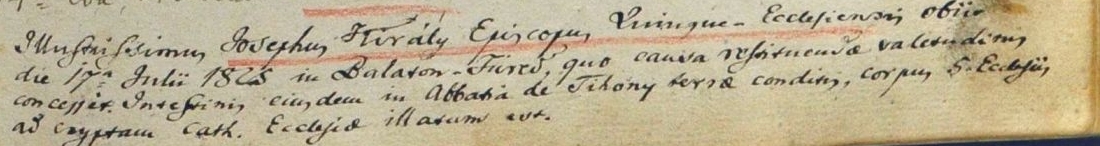 Illustrissimus Josephus Király Episcopus Quinque-Ecclesiensis obiit
die 17ª Julii 1825 in Balaton-Füred, quo causa restituendæ valetudinis
concessit. Intestinis eiusdem in Abbatia de Tihony terræ conditis, corpus 5-Ecclesiis
ad cryptam Cath. Ecclesiæ illatum est.